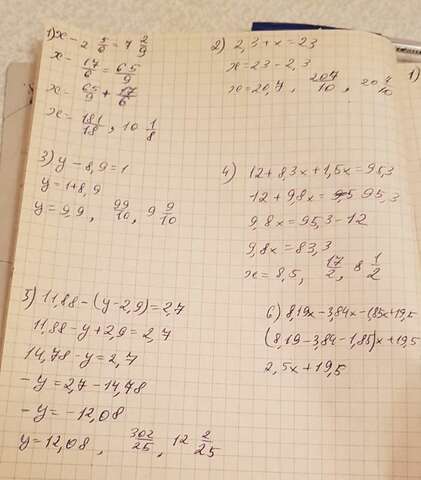 1) x - 2 5/6 = 7 2/9
x - 17/6 = 65/9
x = 65/9 + 17/6
x = 181/18 , 10 1/8
2) 2,3 + x = 23
x = 23 - 2,3
x = 20,7 , 207/10 , 20 7/10
1)
3) y - 8,9 = 1
y = 1 + 8,9
y = 9,9 , 99/10 , 9 9/10
4) 12 + 8,3x + 1,5x = 95,3
12 + 9,8x = 95,3
9,8x = 95,3 - 12
9,8x = 83,3
x = 8,5 , 17/2 , 8 1/2
5) 11,88 - (y - 2,9) = 2,7
11,88 - y + 2,9 = 2,7
14,78 - y = 2,7
- y = 2,7 - 14,78
- y = - 12,08
y = 12,08 , 302/25 , 12 2/25
6) 8,19x - 3,84x - 1,85x + 19,5
(8,19 - 3,84 - 1,85)x + 19,5
2,5x + 19,5